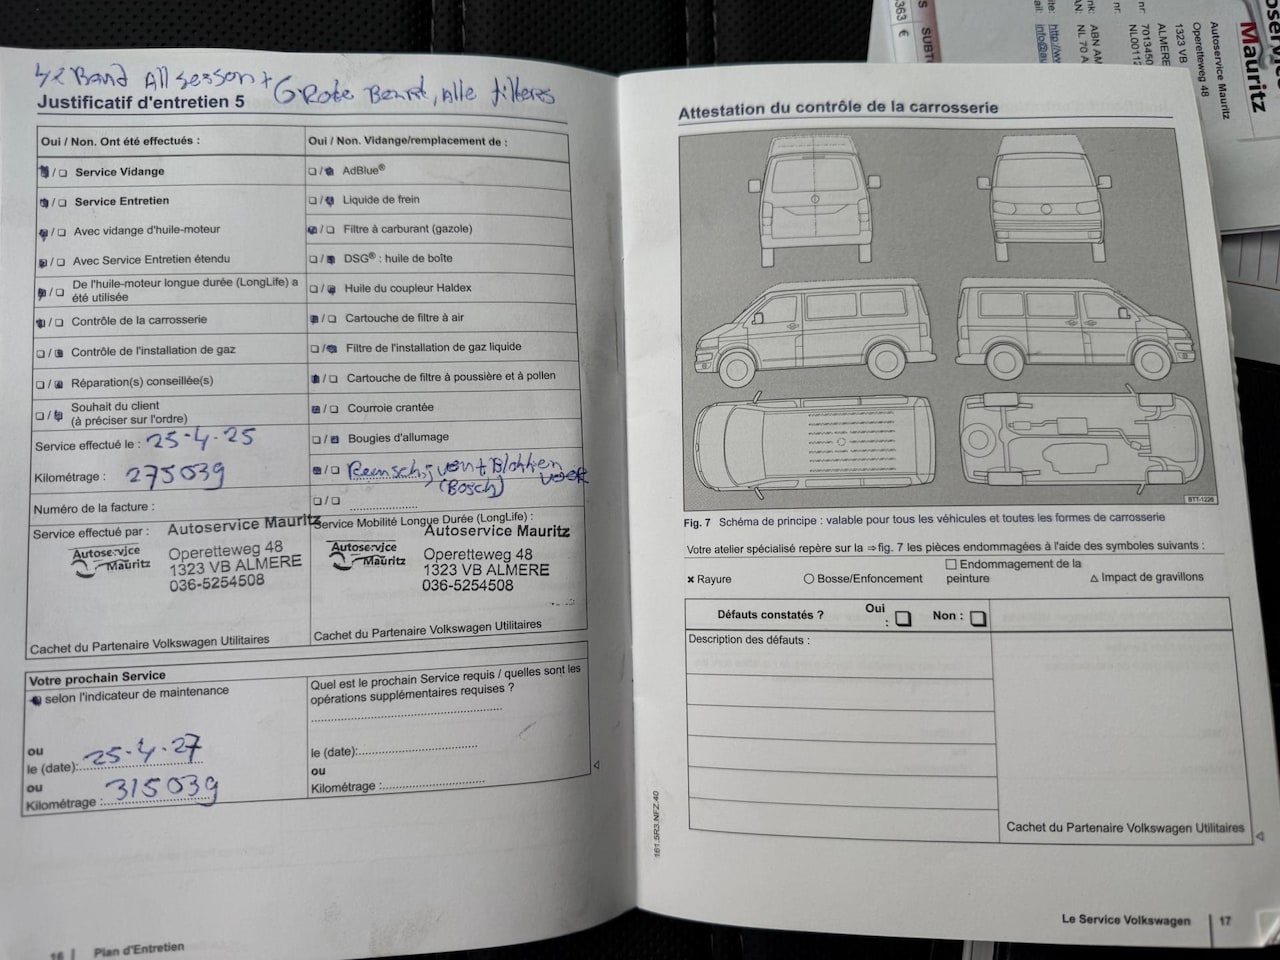 4x Band All seson + GRote Beurt, Alle filters
Justificatif d'entretien 5
Oui / Non. Ont été effectués :
Service Vidange
Service Entretien
Avec vidange d'huile-moteur
Avec Service Entretien étendu
De l'huile-moteur longue durée (LongLife) a
été utilisée
Contrôle de la carrosserie
Contrôle de l'installation de gaz
Réparation(s) conseillée(s)
Souhait du client
(à préciser sur l'ordre)
Service effectué le : 25-4-25
Kilométrage : 275039
Numéro de la facture :
Service effectué par :
Autoservice Mauritz
Autoservice
Mauritz
Operetteweg 48
1323 VB ALMERE
036-5254508
Cachet du Partenaire Volkswagen Utilitaires
Oui / Non. Vidange/remplacement de :
AdBlue®
Liquide de frein
Filtre à carburant (gazole)
DSG® : huile de boîte
Huile du coupleur Haldex
Cartouche de filtre à air
Filtre de l'installation de gaz liquide
Cartouche de filtre à poussière et à pollen
Courroie crantée
Bougies d'allumage
Remschijven + Blokken
(Bosch)
Service Mobilité Longue Durée (LongLife) :
Autoservice Mauritz
Autoservice
Mauritz
Operetteweg 48
1323 VB ALMERE
036-5254508
Cachet du Partenaire Volkswagen Utilitaires
Votre prochain Service
selon l'indicateur de maintenance
ou
le (date): 25-4-27
ou
Kilométrage : 315039
Quel est le prochain Service requis / quelles sont les
opérations supplémentaires requises ?
le (date):
ou
Kilométrage :
16 | Plan d'Entretien
Attestation du contrôle de la carrosserie
BTT-1226
Fig. 7 Schéma de principe : valable pour tous les véhicules et toutes les formes de carrosserie
Votre atelier spécialisé repère sur la ⇒ fig. 7 les pièces endommagées à l'aide des symboles suivants :
× Rayure
○ Bosse/Enfoncement
□ Endommagement de la
peinture
△ Impact de gravillons
Défauts constatés ?
Oui
:
Non :
Description des défauts :
Cachet du Partenaire Volkswagen Utilitaires
161.5R3.NFZ.40
Le Service Volkswagen | 17
363 €
SUBT
Mauritz
Autoservice Mauritz
Operetteweg 48
1323 VB
ALMERE
7013450